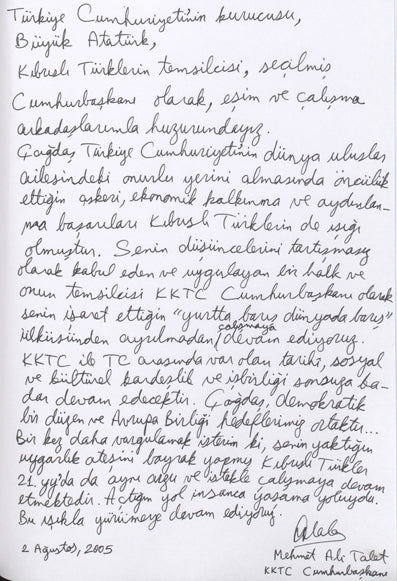 Türkiye Cumhuriyetinin kurucusu,
Büyük Atatürk,
Kıbrıslı Türklerin temsilcisi, seçilmiş
Cumhurbaşkanı olarak, eşim ve çalışma
arkadaşlarımla huzurundayız.
Çağdaş Türkiye Cumhuriyetinin dünya uluslar
ailesindeki onurlu yerini almasında öncülük
ettiğin askeri, ekonomik kalkınma ve aydınlan-
ma başarıları Kıbrıslı Türklerin de ışığı
olmuştur. Senin düşüncelerini tartışmasız
olarak kabul eden ve uygulayan bir halk ve
onun temsilcisi KKTC Cumhurbaşkanı olarak
senin işaret ettiğin "yurtta barış dünyada barış"
ülküsünden ayrılmadan çalışmaya devam ediyoruz.
KKTC ile TC arasında var olan tarihi, sosyal
ve kültürel kardeşlik ve işbirliği sonsuza ka-
dar devam edecektir. Çağdaş, demokratik
bir düzen ve Avrupa Birliği hedeflerimiz ortaktır...
Bir kez daha vurgulamak isterim ki, senin yaktığın
uygarlık ateşini bayrak yapmış Kıbrıslı Türkler
21. yy'da da aynı arzu ve istekle çalışmaya devam
etmektedir. Açtığın yol insanca yaşama yoluydu.
Bu ışıkla yürümeye devam ediyoruz.
2 Ağustos, 2005
Mehmet Ali Talat
KKTC Cumhurbaşkanı